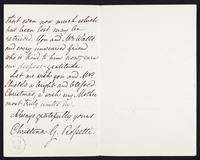 that even now much which
has been lost may be
retrieved. You and Mr Watts
and every unwearied friend
who is kind to him now, earn
our deepest gratitude.
Let me wish you and Mrs
Shields a bright and blessed
Christmas, & wish my Mother
most truly unites in.
Always gratefully yours
Christina G. Rossetti